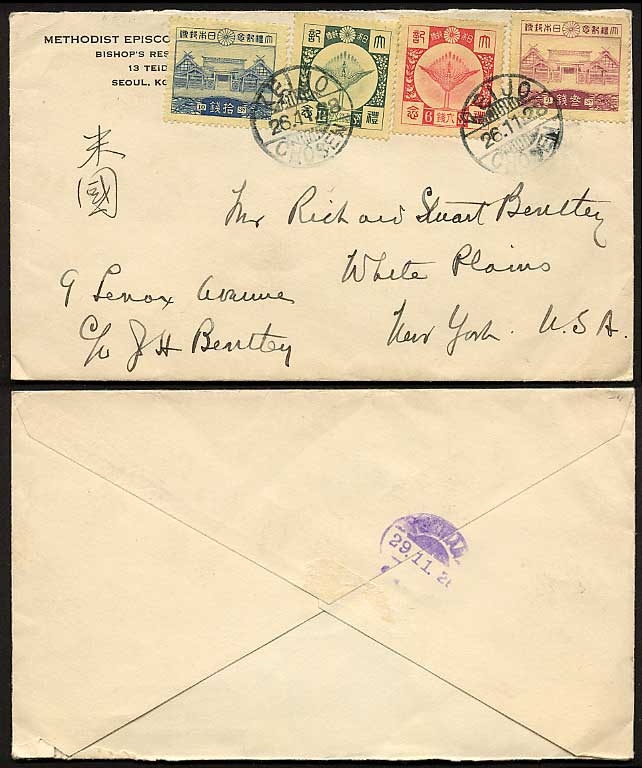 METHODIST EPISCO
BISHOP'S RES
13 TEID
SEOUL, KO
大禮紀念 日本郵便
拾錢
大禮紀念
日本郵便
六錢 6
大禮紀念 日本郵便
KEIJO
26.11.28
CHOSEN
KEIJO
26.11.28
CHOSEN
米
國
Mr Richard Stuart Bentley
White Plains
New York. U.S.A.
9 Lenox Avenue
c/o J H Bentley
29.11.2